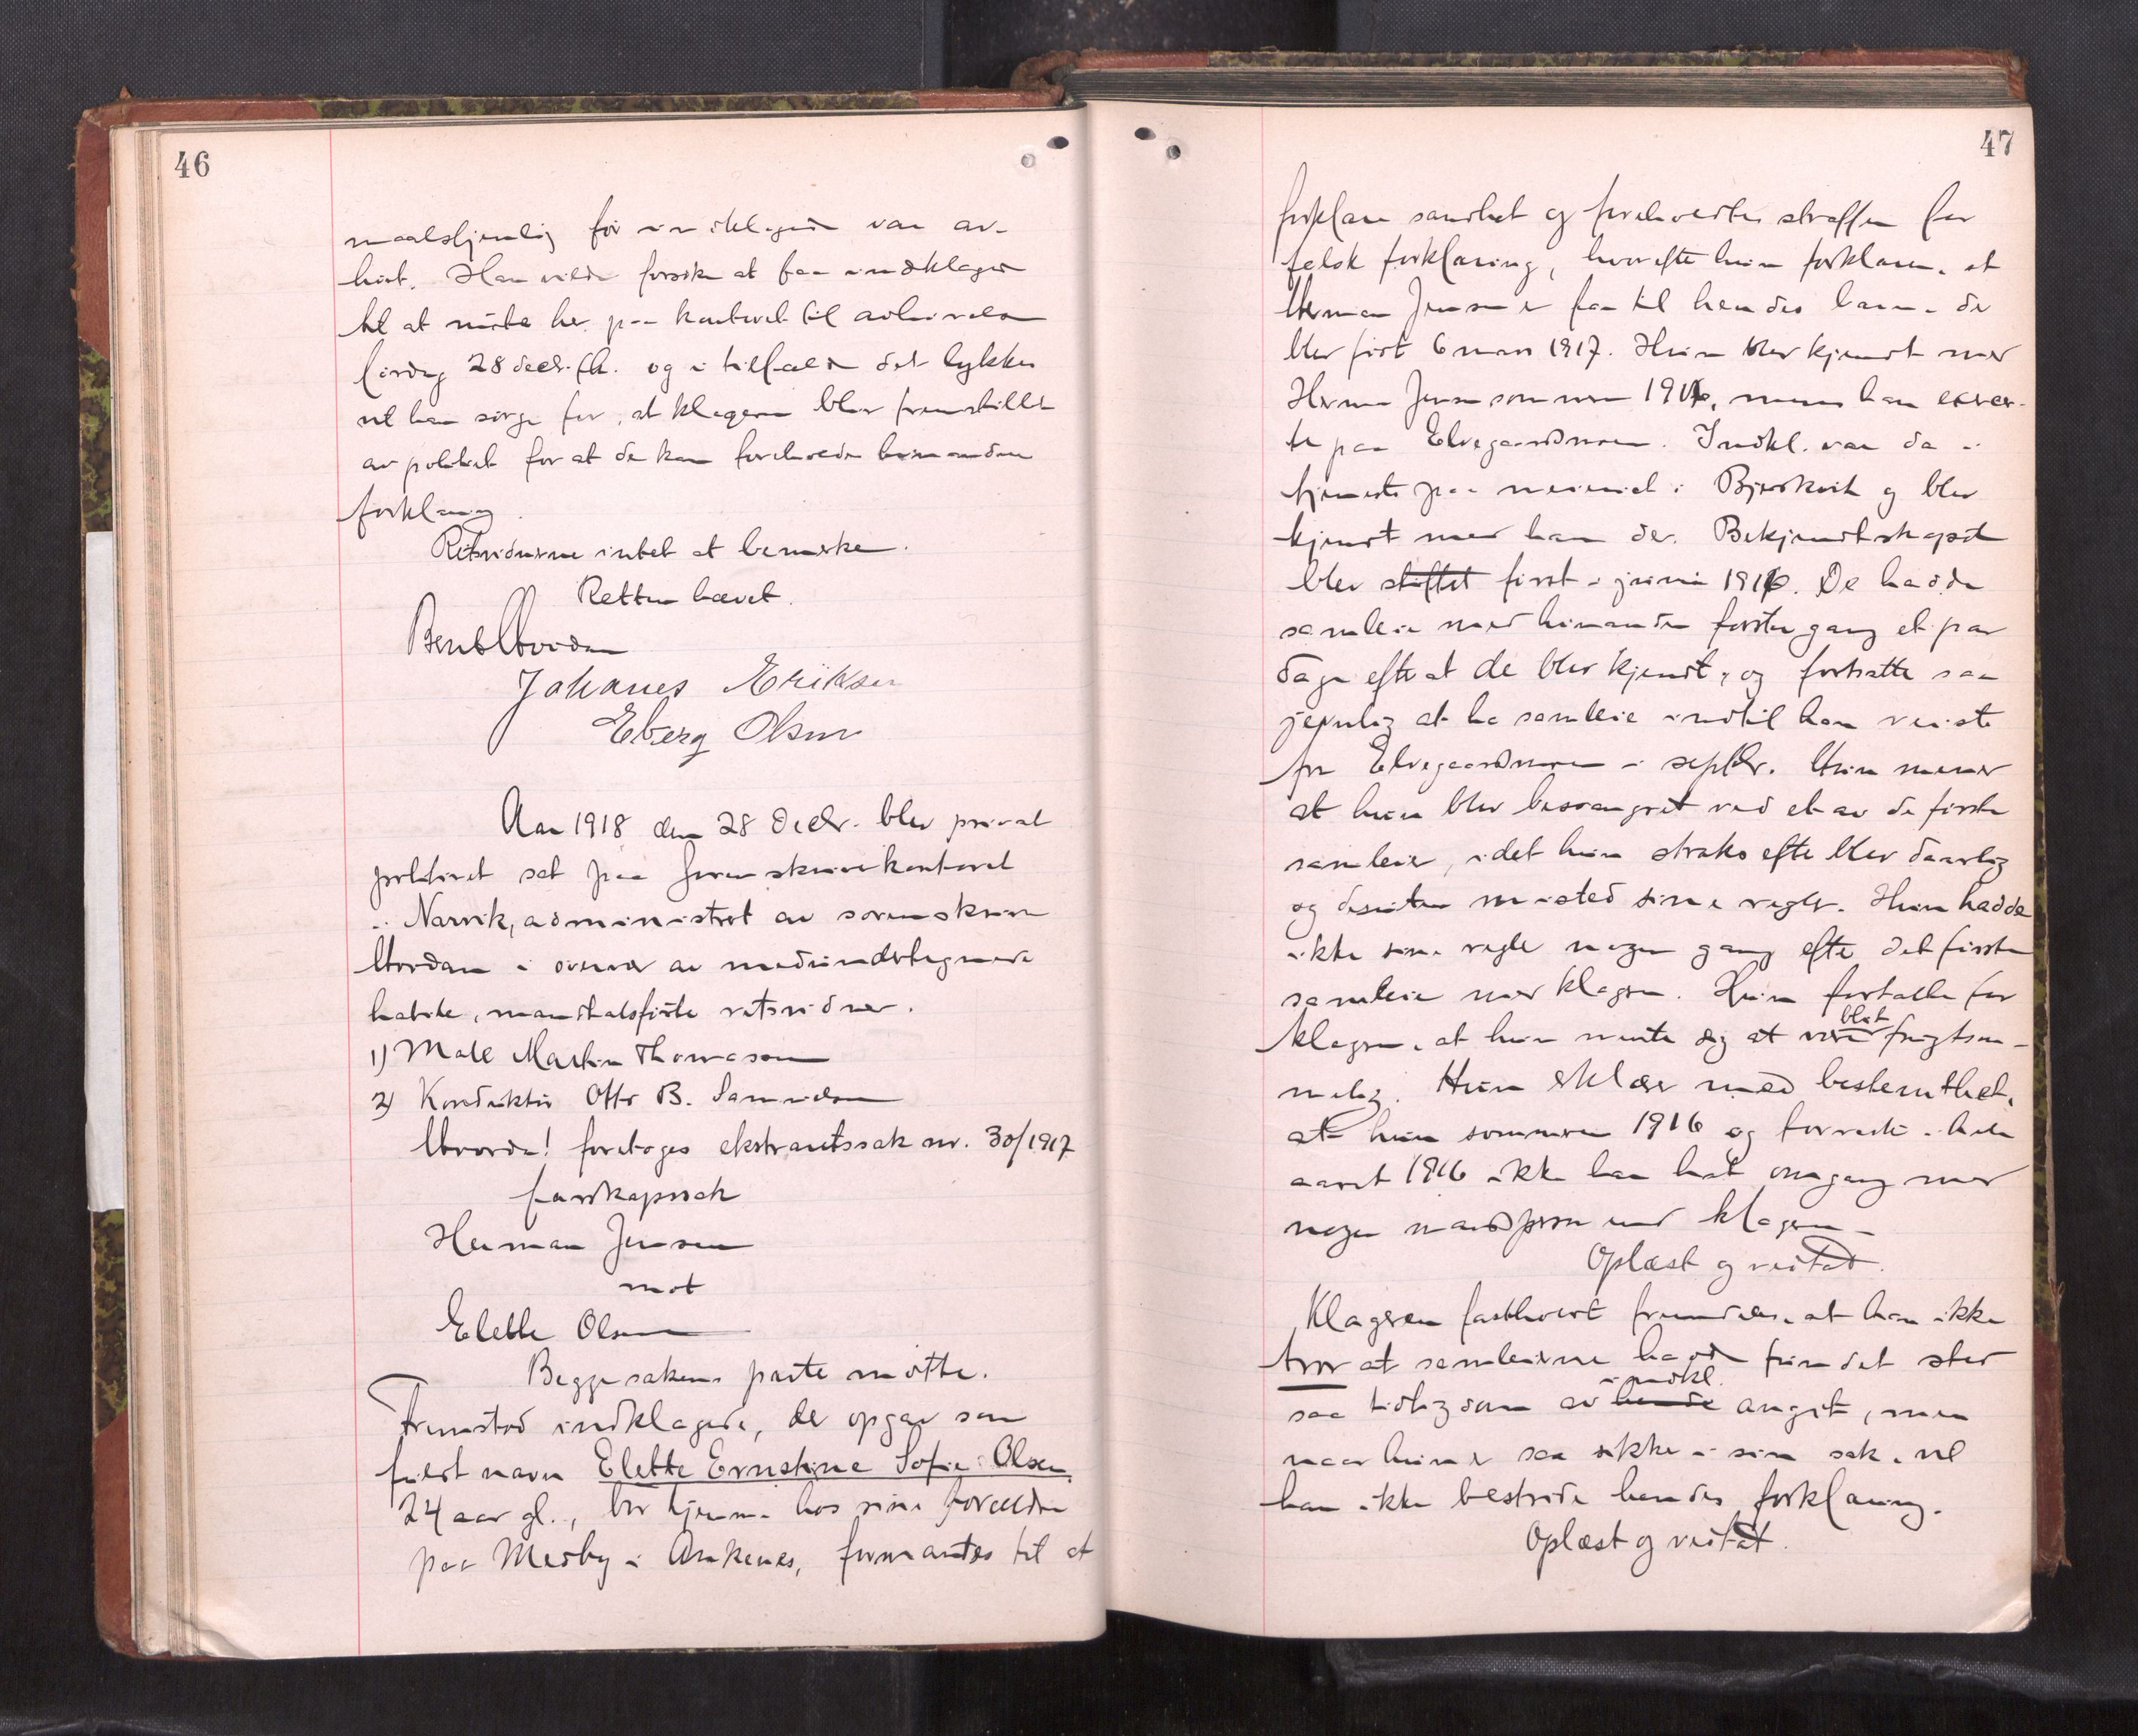 46
maalstjenlig før indklagede var av-
hørt. Han vilde forsøke at faa indklagede
til at møte her paa kontoret til avhørelse
lørdag 28 decbr. og i tilfælde det lykkes
vil han sørge for, at klageren blir fremstillet
av politiet for at de kan foreholdes hinandens
forklaring.
Retsvidnerne intet at bemerke.
Retten hævet.
Johanes Eriksen
Eberg Olsen
Aar 1918 den 28 decbr. blev privat
politiret sat paa sorenskriverkontoret
i Narvik, administrert av sorenskriver
i overvær av medundertegnede
habile, mandtalsførte retsvidner.
1) Martin Thomassen
2) Konduktør Otto B. Samuelsen
Hvorda! foretoges ekstraretssak nr. 30/1917
farskapssak
Herman Jensen
mot
Elette Olsen
Begge sakens parter møtte.
Fremstod indklagede, der opgav som
fuldt navn Elette Ernstine Sofie Olsen,
24 aar gl., bor hjemme hos sine forældre
paa Meiby i Ankenes, formantes til at
47
forklare sandhet og foreholdtes straffen for
falsk forklaring, hvorefter hun forklarer, at
Herman Jensen er far til hendes barn, der
blev født 6 mars 1917. Hun blev kjendt med
Herman Jensen sommeren 1916, mens han exercer-
te paa Elvegaardsmoen. Indkl. var da i
tjeneste paa meieriet i Bjerkvik og blev
kjendt med ham der. Bekjendtskapet
blev stiftet først i juni 1916. De hadde
samleie med hinanden første gang et par
dage efter at de blev kjendt, og fortsatte saa
jevnlig at ha samleie indtil han reiste
fra Elvegaardsmoen i septbr. Hun mener
at hun blev besvangret ved et av de første
samleier, idet hun straks efter blev daarlig
og desuten mistet sine regler. Hun hadde
ikke sine regler nogen gang efter det første
samleie med klageren. Hun fortalte for
klageren, at hun mente sig at være blit frugtsom-
melig. Hun erklærer med bestemthet,
at hun sommeren 1916 og forresten i hele
aaret 1916 ikke har hat omgang med
nogen mandsperson uten klageren.
Oplæst og vedtat.
Klageren fastholdt fremdeles, at han ikke
tror at samleierne hadde fundet sted
saa tidlig som av hende indkl. angit, men
naar hun er saa sikker i sin sak, vil
han ikke bestride hendes forklaring.
Oplæst og vedtat.